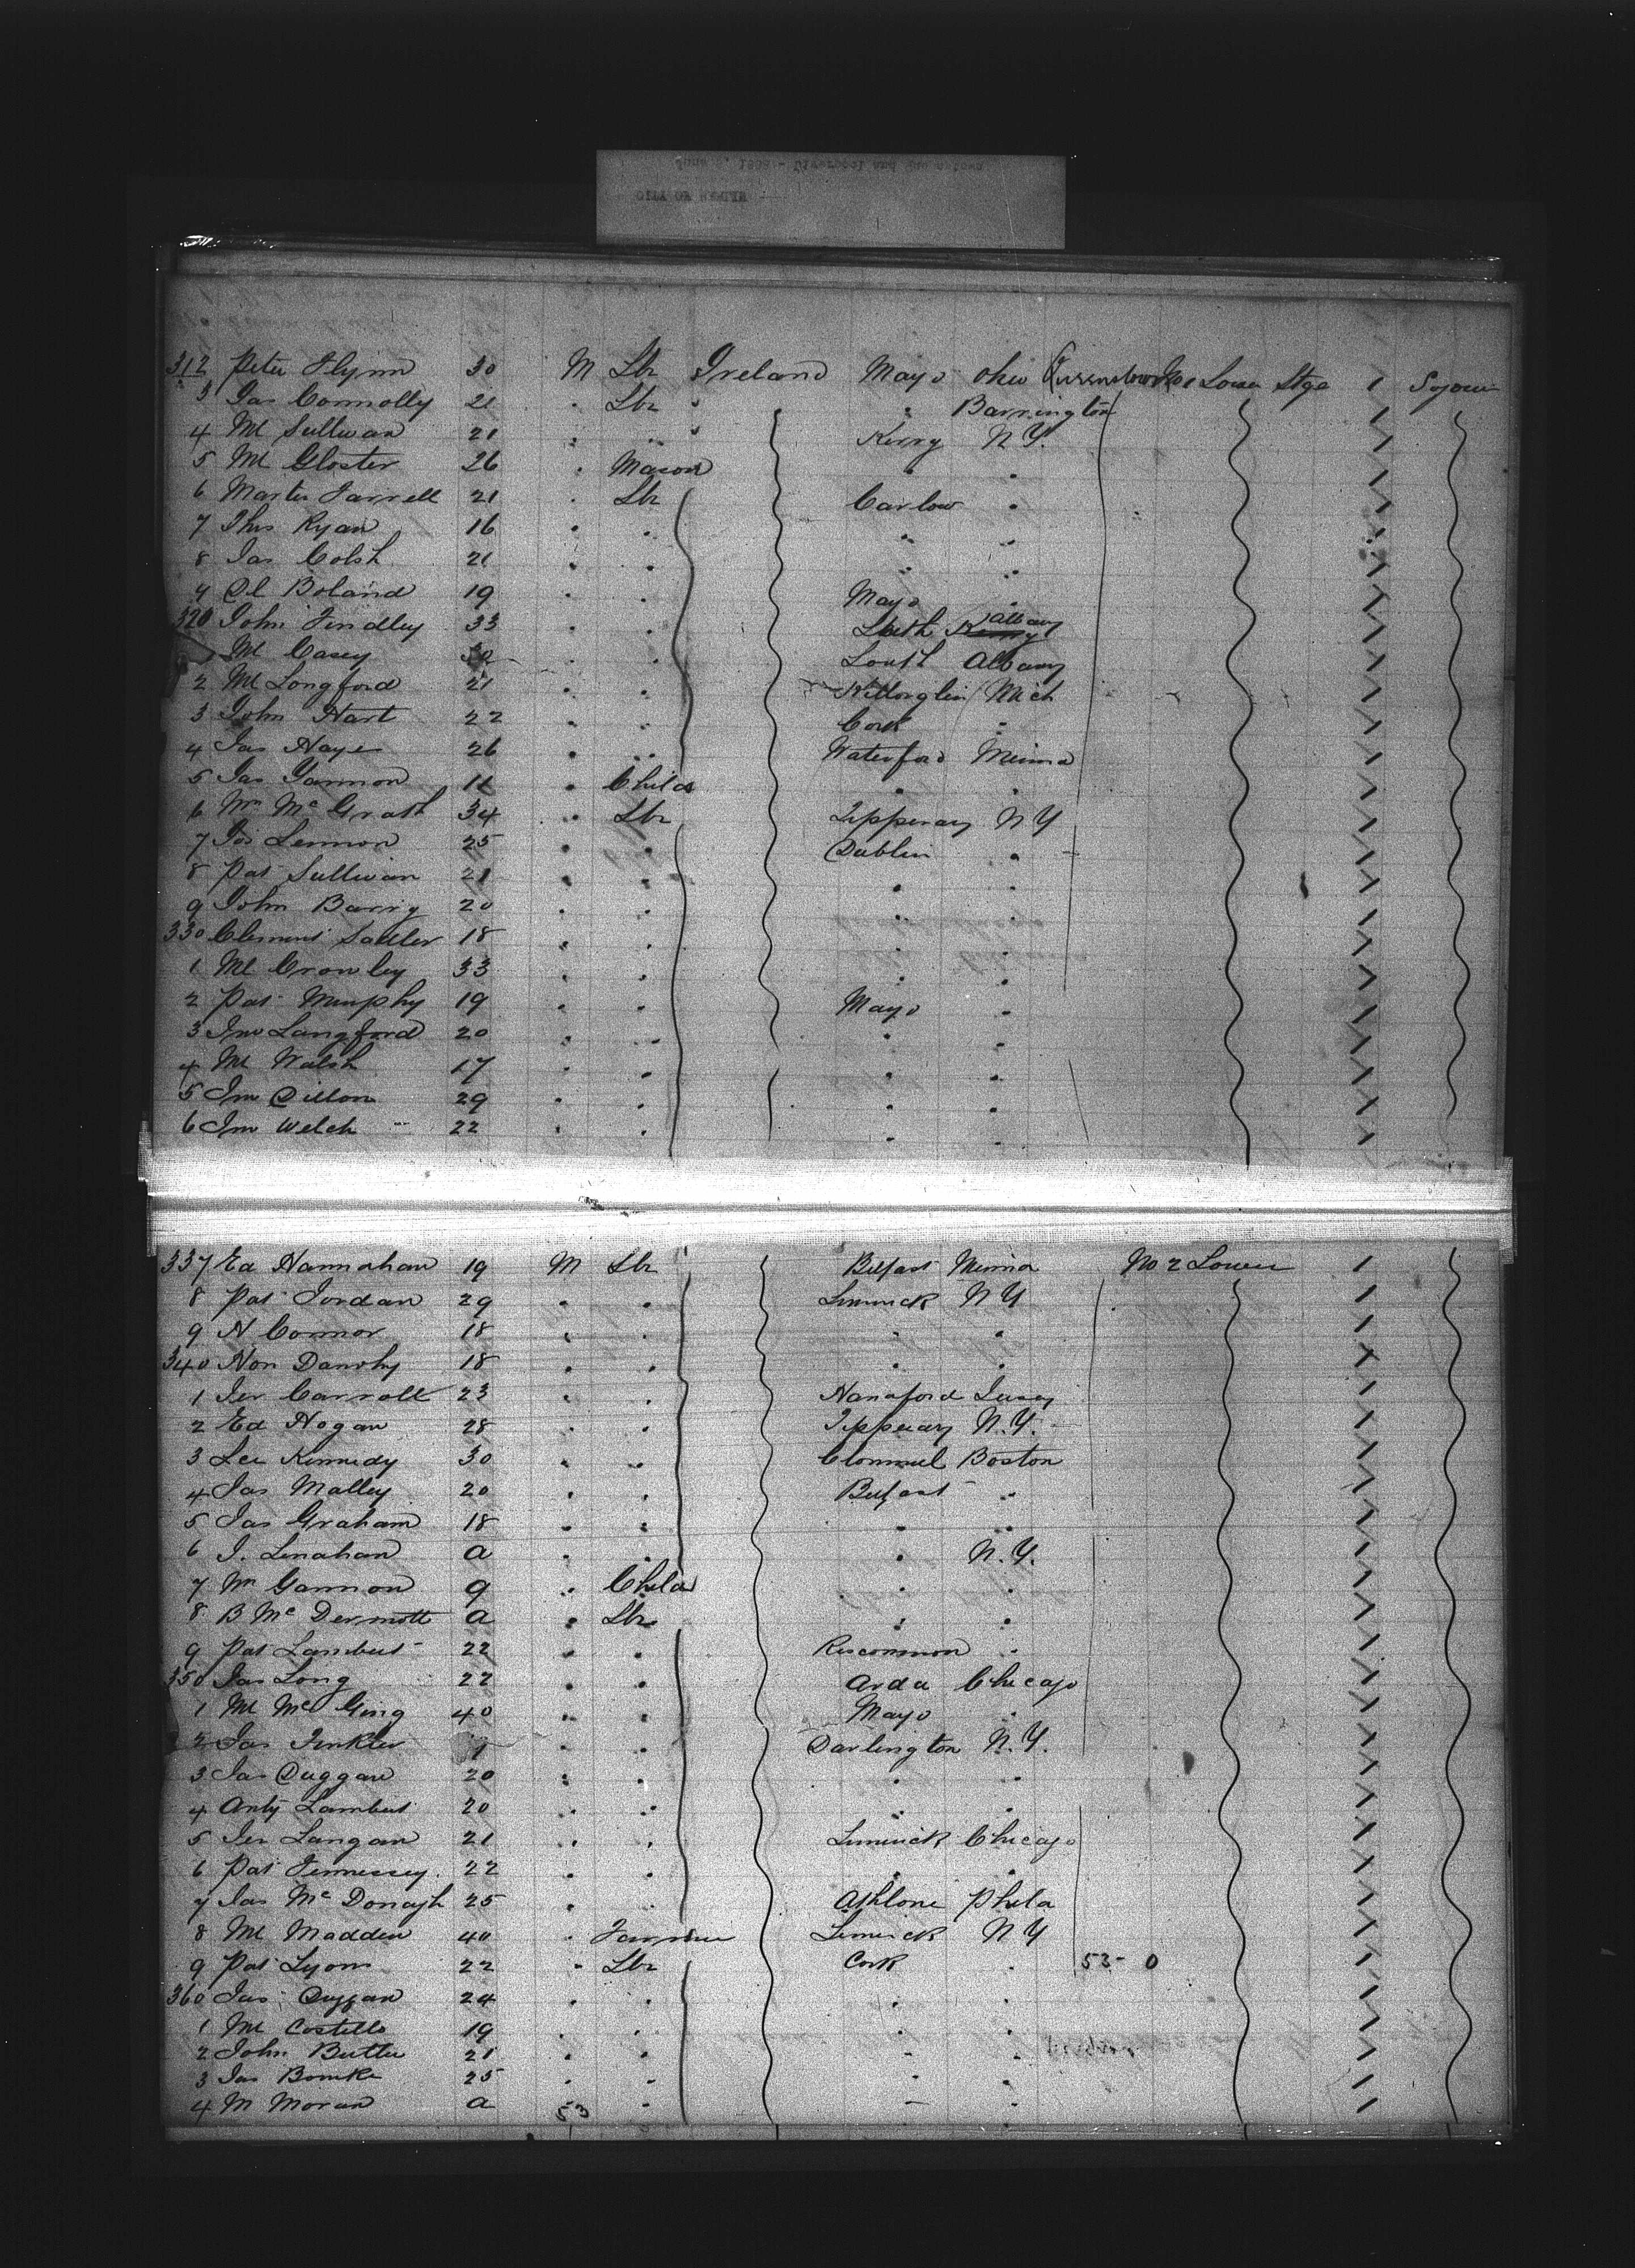 CITY OF
312 Peter Flynn 30 M Lbr Ireland Mayo Ohio Queenstown No 1 Lower Stge 1 Sojour
3 Jas Connolly 21 " Lbr " " Barrington
4 Ml Sullivan 21 " " " Kerry N Y.
5 Ml Gloster 26 " Mason " "
6 Martin Farrell 21 " Lbr Carlow "
7 Thos Ryan 16 " " " "
8 Jas Colsh 21 " " " "
9 Dl Boland 19 " " Mayo "
320 John Findley 33 " " Louth Albany
Ml Casey 30 " " Louth Albany
2 Ml Longford 21 " " Killorglin Mich
3 John Hart 22 " " Cork "
4 Jas Hayes 26 " " Waterford Minna
5 Jas Gannon 11 " Child " "
6 Wm McGrath 34 " Lbr Tipperary N Y
7 Jos Lennon 25 " " Dublin "
8 Pat Sullivan 21 " " " "
9 John Barry 20 " " " "
330 Clement Sadler 18 " " "
1 Ml Crowley 33 " " " "
2 Pat Murphy 19 " " Mayo "
3 Jno Langford 20 " " " "
4 Ml Walsh 17 " " " "
5 Jno Dillon 29 " " " "
6 Jno Welch 22 " " " "
337 Ed Hannahan 19 M Lbr Belfast Minna No 2 Lower 1
8 Pat Jordan 29 " " Limrick N Y
9 N Connor 18 " " " "
340 Non Danohy 18 " " " "
1 Jer Carroll 23 " " Hanaford Jersey
2 Ed Hogan 28 " " Tipperary N.Y.
3 Lee Kennedy 30 " " Clonmel Boston
4 Jas Malley 20 " " Belfast "
5 Jas Graham 18 " " " "
6 J. Lenahan a " " " N.Y.
7 Wm Gannon 9 " Child " "
8 B McDermott a " Lbr " "
9 Pat Lambert 22 " " Roscommon "
350 Jas Long 22 " " Arda Chicago
1 Ml McGing 40 " " Mayo "
2 Jas Tinkler " " Darlington N.Y.
3 Jas Duggan 20 " " " "
4 Anty Lambert 20 " " " "
5 Jer Langan 21 " " Limrick Chicago
6 Pat Fennessey 22 " " " "
7 Jas McDonagh 25 " " Athlone Phila
8 Ml Madden 40 " Farmer Limerick N Y
9 Pat Lyons 22 " Lbr Cork " 53 - 0
360 Jas Duggan 24 " " " "
1 Ml Costello 19 " " " "
2 John Butler 21 " " " "
3 Jas Bourke 25 " " " "
4 M Moran a 53 " " "